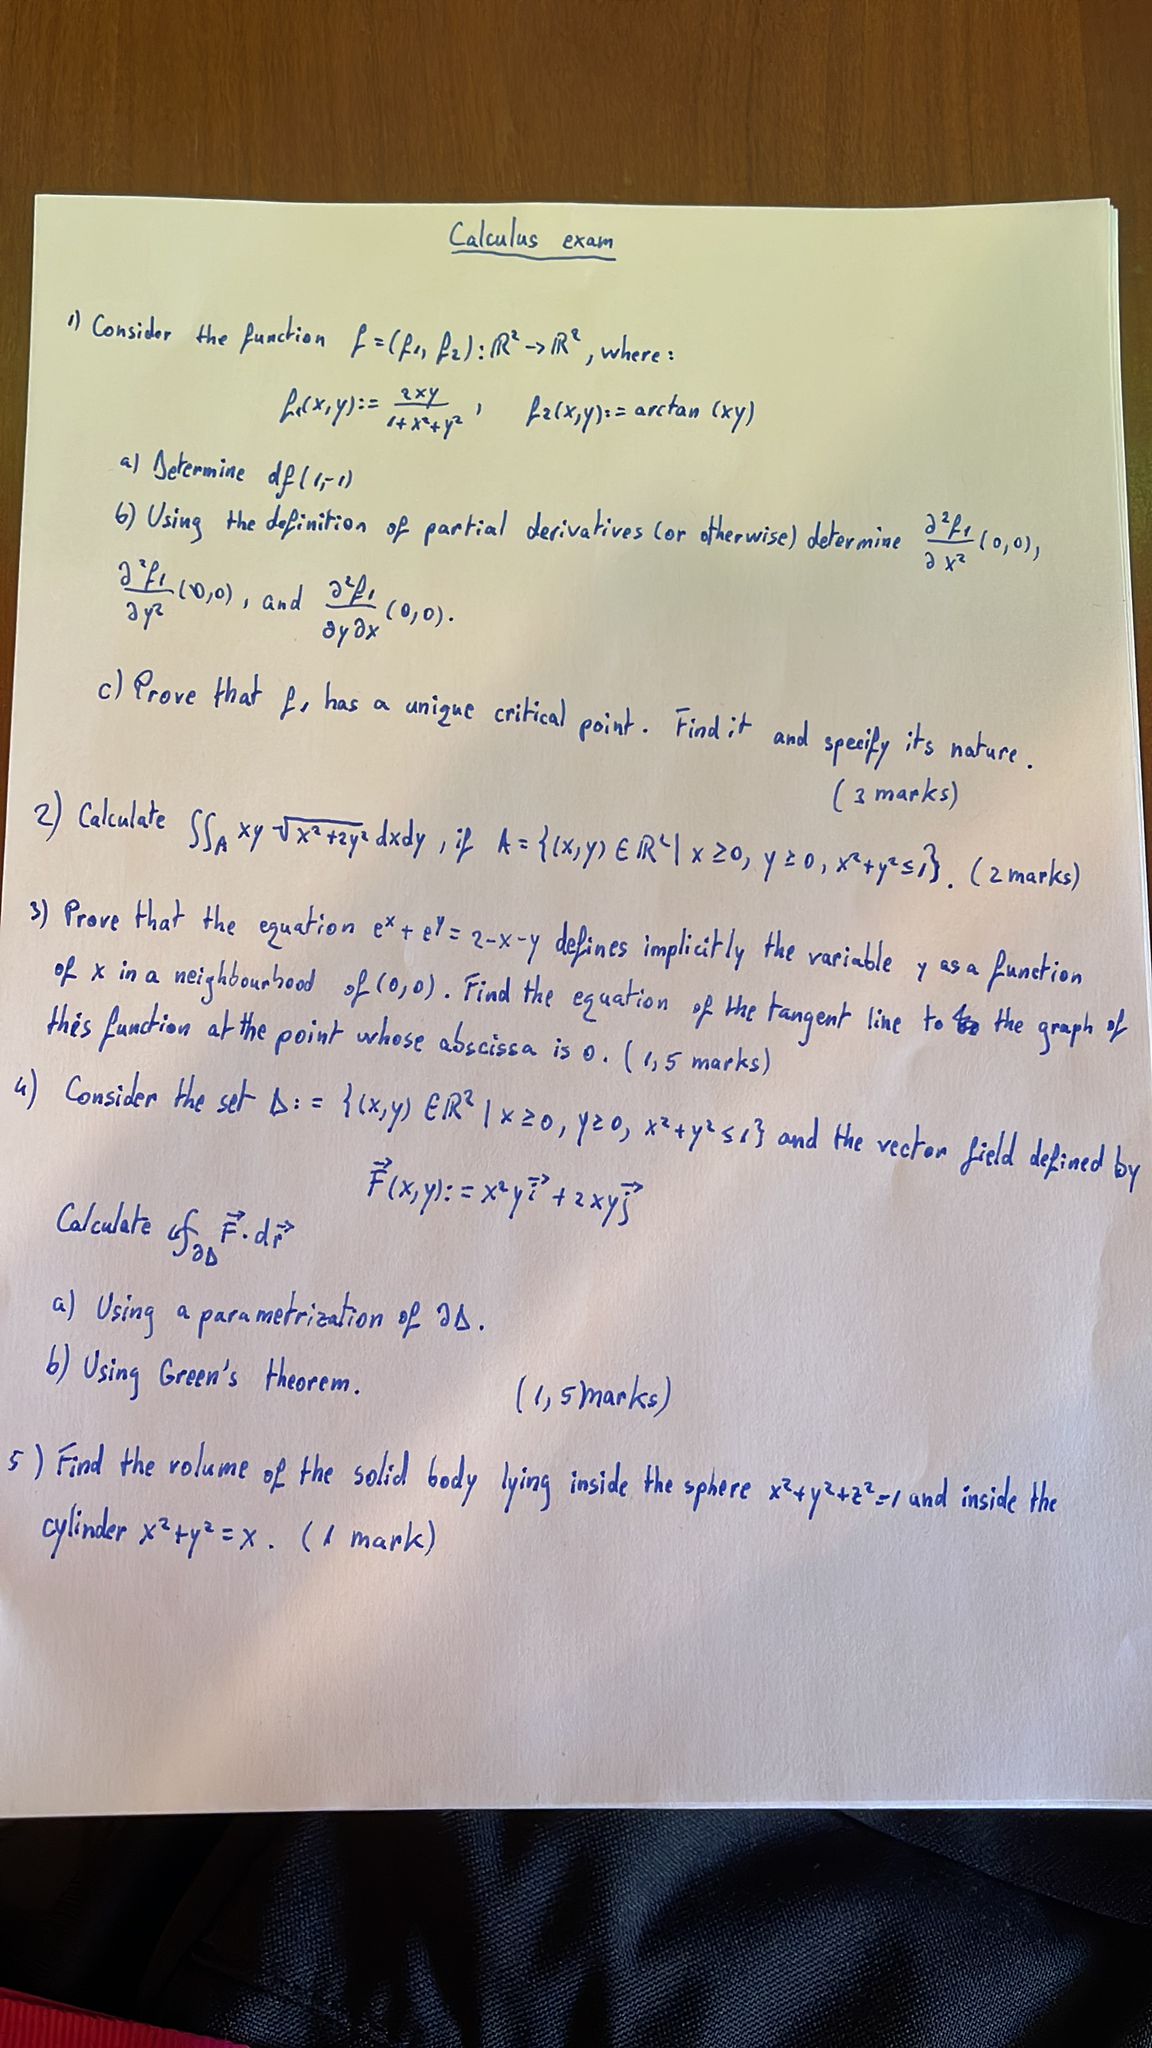 Calculus exam
1) Consider the function f = (f₁, f₂): ℝ² → ℝ², where:
f₁(x,y) := 2xy / (1+x²+y²), f₂(x,y) := arctan (xy)
a) Determine df(1,-1)
b) Using the definition of partial derivatives (or otherwise) determine ∂²f₁/∂x² (0,0),
∂²f₁/∂y² (0,0), and ∂²f₁/∂y∂x (0,0).
c) Prove that f₁ has a unique critical point. Find it and specify its nature.
(3 marks)
2) Calculate ∬_A xy √(x²+2y²) dxdy, if A = {(x,y) ∈ ℝ² | x ≥ 0, y ≥ 0, x²+y² ≤ 1}. (2 marks)
3) Prove that the equation eˣ + eʸ = 2-x-y defines implicitly the variable y as a function
of x in a neighbourhood of (0,0). Find the equation of the tangent line to the graph of
this function at the point whose abscissa is 0. (1,5 marks)
4) Consider the set D := {(x,y) ∈ ℝ² | x ≥ 0, y ≥ 0, x²+y² ≤ 1} and the vector field defined by
F⃗(x,y) := x²y i⃗ + 2xy j⃗
Calculate ∮_∂D F⃗ · dr⃗
a) Using a parametrization of ∂D.
b) Using Green's theorem. (1,5 marks)
5) Find the volume of the solid body lying inside the sphere x²+y²+z²=1 and inside the
cylinder x²+y² = x. (1 mark)